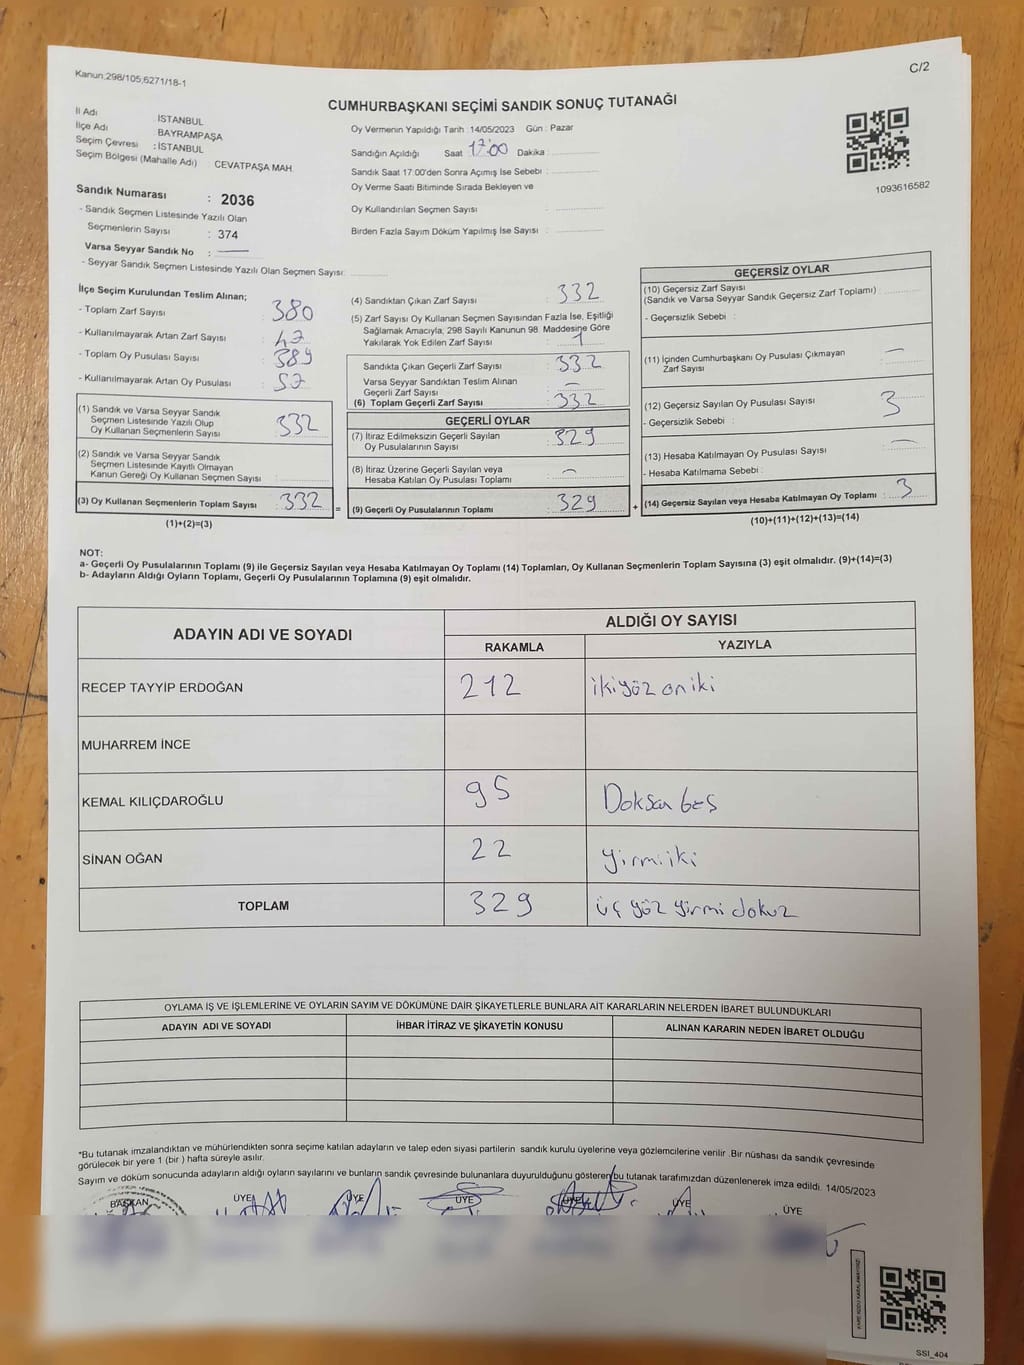 Kanun;298/105;6271/18-1
C/2
CUMHURBAŞKANI SEÇİMİ SANDIK SONUÇ TUTANAĞI
İl Adı : İSTANBUL
İlçe Adı : BAYRAMPAŞA
Seçim Çevresi : İSTANBUL
Seçim Bölgesi (Mahalle Adı) CEVATPAŞA MAH.
Sandık Numarası : 2036
- Sandık Seçmen Listesinde Yazılı Olan
Seçmenlerin Sayısı : 374
Varsa Seyyar Sandık No :
- Seyyar Sandık Seçmen Listesinde Yazılı Olan Seçmen Sayısı:
Oy Vermenin Yapıldığı Tarih :14/05/2023 Gün : Pazar
Sandığın Açıldığı Saat 17:00 Dakika :
Sandık Saat 17:00'den Sonra Açımış İse Sebebi :
Oy Verme Saati Bitiminde Sırada Bekleyen ve
Oy Kullandırılan Seçmen Sayısı :
Birden Fazla Sayım Döküm Yapılmış İse Sayısı :
1093616582
İlçe Seçim Kurulundan Teslim Alınan;
- Toplam Zarf Sayısı : 380
- Kullanılmayarak Artan Zarf Sayısı :
- Toplam Oy Pusulası Sayısı : 389
- Kullanılmayarak Artan Oy Pusulası : 57
(1) Sandık ve Varsa Seyyar Sandık
Seçmen Listesinde Yazılı Olup
Oy Kullanan Seçmenlerin Sayısı : 332
(2) Sandık ve Varsa Seyyar Sandık
Seçmen Listesinde Kayıtlı Olmayan
Kanun Gereği Oy Kullanan Seçmen Sayısı :
(3) Oy Kullanan Seçmenlerin Toplam Sayısı : 332 =
(1)+(2)=(3)
(4) Sandıktan Çıkan Zarf Sayısı : 332
(5) Zarf Sayısı Oy Kullanan Seçmen Sayısından Fazla İse, Eşitliği
Sağlamak Amacıyla; 298 Sayılı Kanunun 98. Maddesine Göre
Yakılarak Yok Edilen Zarf Sayısı :
Sandıkta Çıkan Geçerli Zarf Sayısı : 332
Varsa Seyyar Sandıktan Teslim Alınan
Geçerli Zarf Sayısı : –
(6) Toplam Geçerli Zarf Sayısı : 332
GEÇERLİ OYLAR
(7) İtiraz Edilmeksizin Geçerli Sayılan
Oy Pusulalarının Sayısı : 329
(8) İtiraz Üzerine Geçerli Sayılan veya
Hesaba Katılan Oy Pusulası Toplamı : –
(9) Geçerli Oy Pusulalarının Toplamı : 329 +
GEÇERSİZ OYLAR
(10) Geçersiz Zarf Sayısı
(Sandık ve Varsa Seyyar Sandık Geçersiz Zarf Toplamı) :
- Geçersizlik Sebebi :
(11) İçinden Cumhurbaşkanı Oy Pusulası Çıkmayan
Zarf Sayısı : –
(12) Geçersiz Sayılan Oy Pusulası Sayısı : 3
- Geçersizlik Sebebi :
(13) Hesaba Katılmayan Oy Pusulası Sayısı : –
- Hesaba Katılmama Sebebi :
(14) Geçersiz Sayılan veya Hesaba Katılmayan Oy Toplamı : 3
(10)+(11)+(12)+(13)=(14)
NOT:
a- Geçerli Oy Pusulalarının Toplamı (9) ile Geçersiz Sayılan veya Hesaba Katılmayan Oy Toplamı (14) Toplamları, Oy Kullanan Seçmenlerin Toplam Sayısına (3) eşit olmalıdır. (9)+(14)=(3)
b- Adayların Aldığı Oyların Toplamı, Geçerli Oy Pusulalarının Toplamına (9) eşit olmalıdır.
ADAYIN ADI VE SOYADI
ALDIĞI OY SAYISI
RAKAMLA YAZIYLA
RECEP TAYYİP ERDOĞAN 212 ikiyüz on iki
MUHARREM İNCE
KEMAL KILIÇDAROĞLU 95 Doksan beş
SİNAN OĞAN 22 yirmi iki
TOPLAM 329 üç yüz yirmi dokuz
OYLAMA İŞ VE İŞLEMLERİNE VE OYLARIN SAYIM VE DÖKÜMÜNE DAİR ŞİKAYETLERLE BUNLARA AİT KARARLARIN NELERDEN İBARET BULUNDUKLARI
ADAYIN ADI VE SOYADI İHBAR İTİRAZ VE ŞİKAYETİN KONUSU ALINAN KARARIN NEDEN İBARET OLDUĞU
*Bu tutanak imzalandıktan ve mühürlendikten sonra seçime katılan adayların ve talep eden siyasi partilerin sandık kurulu üyelerine veya gözlemcilerine verilir .Bir nüshası da sandık çevresinde
görülecek bir yere 1 (bir ) hafta süreyle asılır.
Sayım ve döküm sonucunda adayların aldığı oyların sayılarını ve bunların sandık çevresinde bulunanlara duyurulduğunu gösteren bu tutanak tarafımızdan düzenlenerek imza edildi. 14/05/2023
BAŞKAN ÜYE ÜYE ÜYE ÜYE ÜYE ÜYE
SSI_404